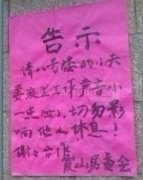 告示
请八号楼的小天
姜夜里工作声音小
一点(好),切勿影
响他人休息!
谢谢合作
霞山居委会